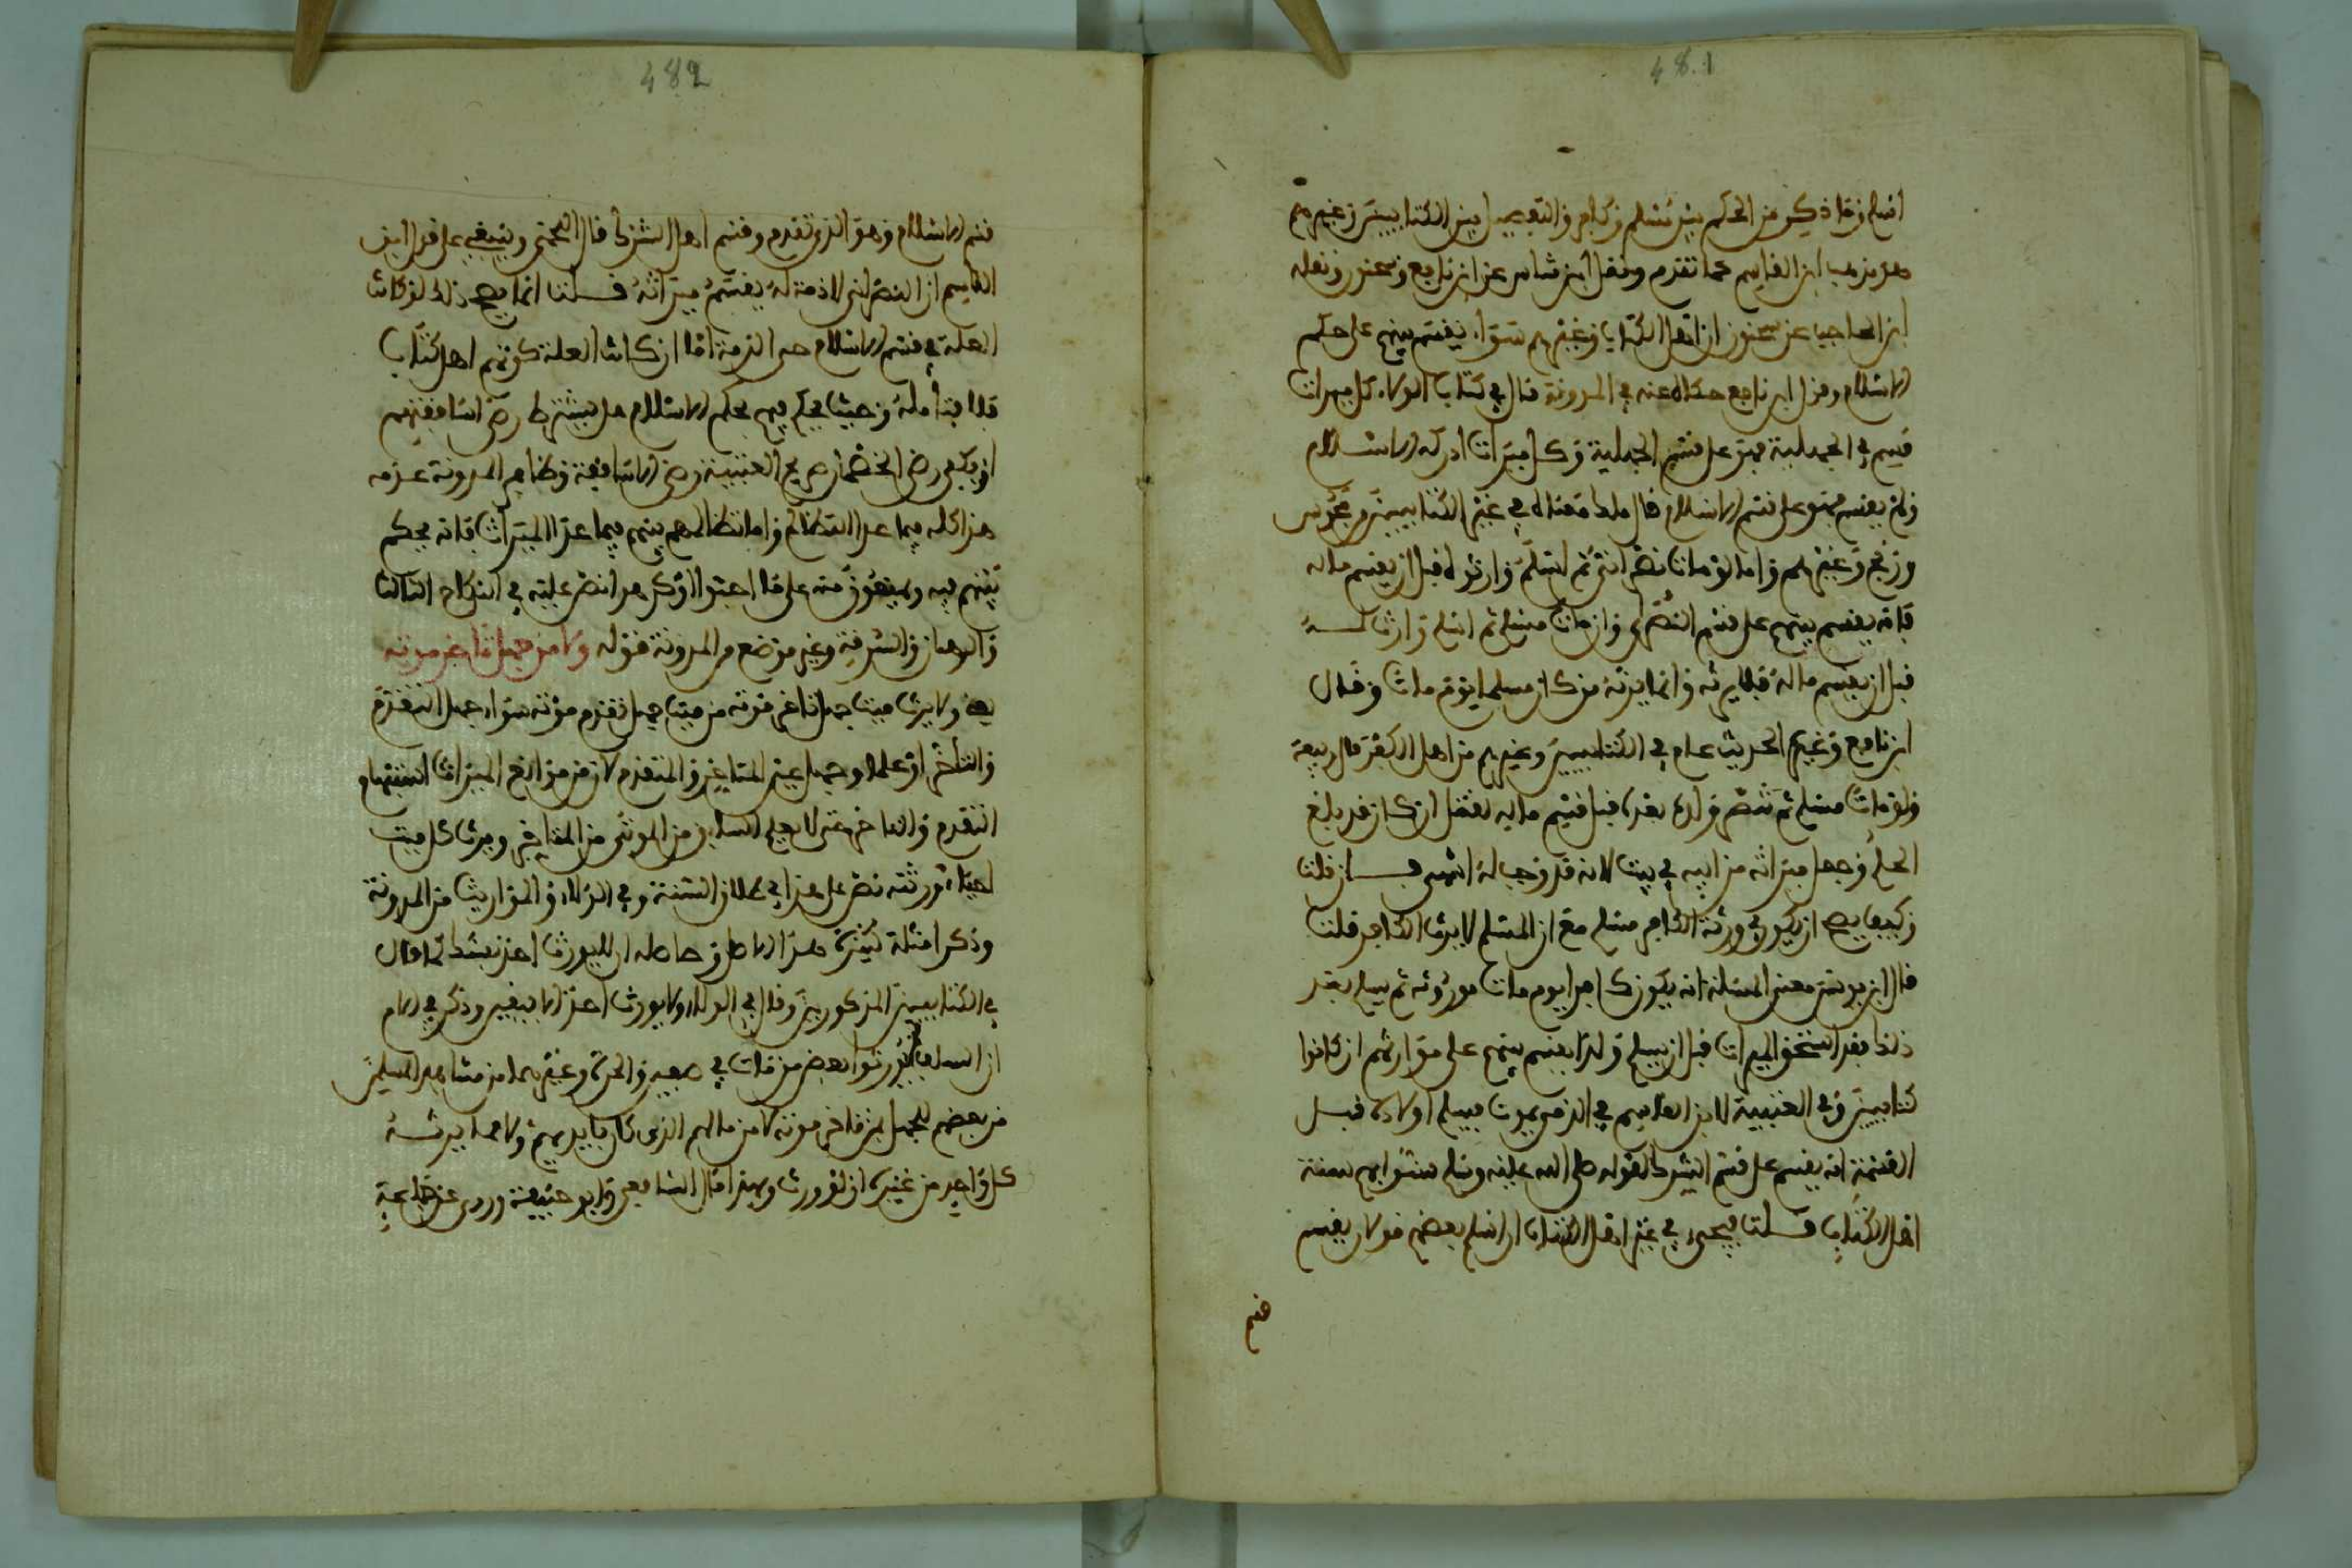 481
اسلم وما ذكر من الحكم بين مسلم وكافر والتفصيل بين الكتابيين وغيرهم
هو مذهب ابن القاسم كما تقدم ونقل ابن شاس عن ابن نافع وسحنون ونقله
ابن الحاجب عن سحنون ان اهل الكتاب وغيرهم سواء يقسم بينهم على حكم
الاسلام وقول ابن نافع حكاه عنه في المدونة قال في كتاب الولاء كل ميراث
قسم في الجهلية فهو على قسم الجهلية وكل ميراث ادركه الاسلام
ولم يقسم فهو على قسم الاسلام قال ملك معناه في غير الكتابيين من مجوس
وزنج وغيرهم واما لو مات نصراني ثم اسلم وارثوه قبل ان يقسم ماله
فانه يقسم بينهم على قسم النصارى وان مات مسلم ثم اسلم وارث له
قبل ان يقسم ماله فلا يرثه وانما يرثه من كان مسلما يوم مات وقال
ابن نافع وغيره الحديث عام في الكتابيين وغيرهم من اهل الكفر قال ربيعة
ولو مات مسلم ثم تنصر ولده بعده قبل قسم ماله يقتل ان كان قد بلغ
الحلم وجعل ميراثه من ابيه في بيت لانه قد وجب له انتهى فان قلت
وكيف يصح ان يكون في ورثة الكافر مسلم مع ان المسلم لا يرث الكافر قلت
قال ابن يونس معنى المسئلة انه يكون كافرا يوم مات موروثه ثم يسلم بعد
ذلك فقد استحق الميراث قبل ان يسلم ولذا يقسم بينهم على مواريثهم ان كانوا
كتابيين وفي العتبية لابن القاسم في الذمي يموت فيسلم اولاده قبل
القسمة انه يقسم على قسم الشرك لقوله صلى الله عليه وسلم سنوا بهم سنة
اهل الكتاب قلت فيجيء في غير اهل الكتاب ان اسلم بعضهم قولان يقسم
قسم
482
قسم الاسلام وهو الذي تقدم وقسم اهل الشرك قال اللخمي وينبغي على قول ابن
القاسم ان النصراني لا ذمة له يقسم ميراثه قلت انما يصح ذلك لو كانت
العلة في قسم الاسلام عدم الذمة اما ان كانت العلة كونهم اهل كتاب
فلا فتامله وحيث يحكم فيهم بحكم الاسلام هل يشترط رضى اساقفتهم
او يكفي رضى الخصمان صريح العتبية رضى الاساقفة وظاهر المدونة عدمه
هذا كله فيما عدا التظالم واما تظالمهم بينهم فيما عدا الميراث فانه يحكم
بينهم فيه ولا يتعرض منه على ما احبوا او كرهوا نص عليه في النكاح الثالث
والرهان والسرقة وغير موضع من المدونة قوله ولا من جهل تاخر موته
يعني ولا يرث ميت جهل تاخر موته من ميت جهل تقدم موته سواء جهل التقدم
والتاخر او علما وجهل عين المتاخر والمتقدم لان من موانع الميراث استبهام
التقدم والتاخر حتى لا يعلم السابق من الموتى من المتاخر ويرث كل ميت
احياء ورثته نص على هذا في طلاق السنة وفي الولاء والمواريث من المدونة
وذكر امثلة كثيرة هذا الاصل وحاصله ان لا يورث احد بشك كما قال
في الكتابيين المذكورين وقال في الولاء ولا يورث احد الا بيقين وذكر في الام
ان السلف لم يورثوا بعض من مات في صفين والحرة وغيرهما من مشاهد المسلمين
من بعضهم للجهل بمن تاخر موته لا من مالهم الذي كان بايديهم ولا مما يرثه
كل واحد من غيره ان لو ورث وبهذا قال الشافعي وابو حنيفة وروى عن جماعة